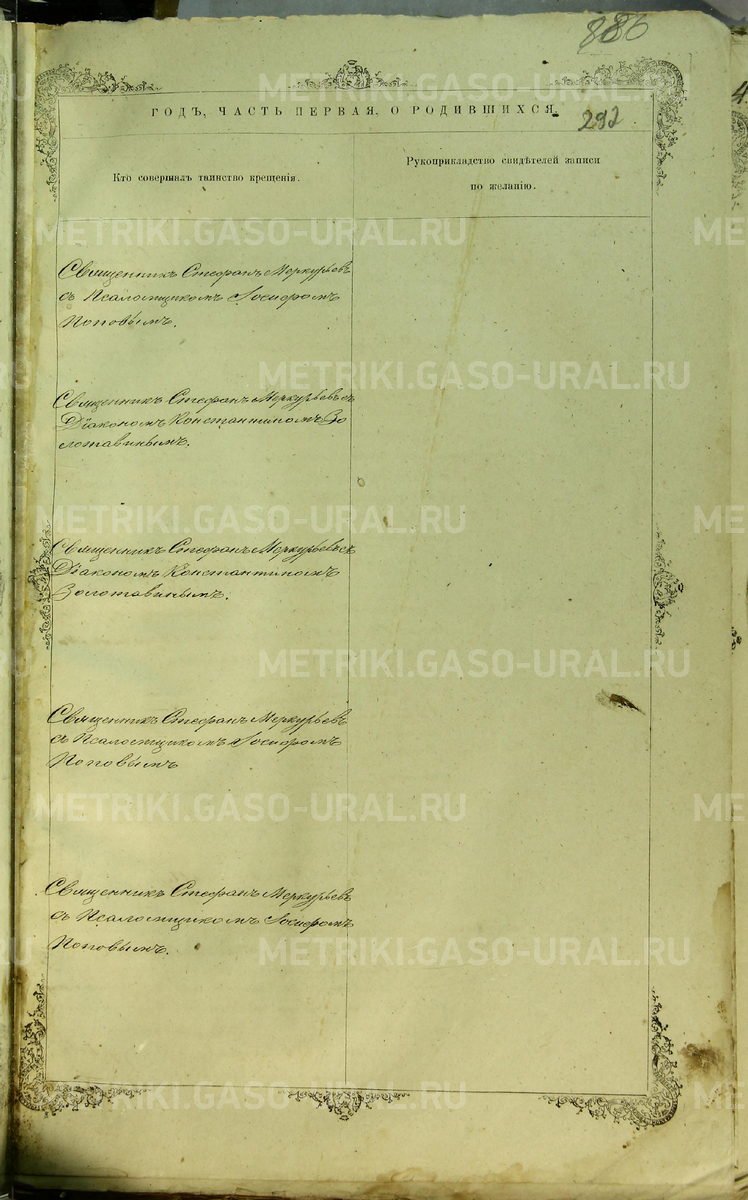 886
ГОДЪ, ЧАСТЬ ПЕРВАЯ, О РОДИВШИХСЯ.
292
Кто совершалъ таинство крещенія.
Рукоприкладство свидѣтелей записи
по желанію.
Священникъ Стефанъ Меркурьевъ
съ Псаломщикомъ Іосифомъ
Поповымъ.
Священникъ Стефанъ Меркурьевъ съ
Діакономъ Константиномъ Зо
лотавинымъ.
Священникъ Стефанъ Меркурьевъ съ
Діакономъ Константиномъ
Золотавинымъ.
Священникъ Стефанъ Меркурьевъ
съ Псаломщикомъ Іосифомъ
Поповымъ
Священникъ Стефанъ Меркурьевъ
съ Псаломщикомъ Іосифомъ
Поповымъ.
METRIKI.GASO-URAL.RU